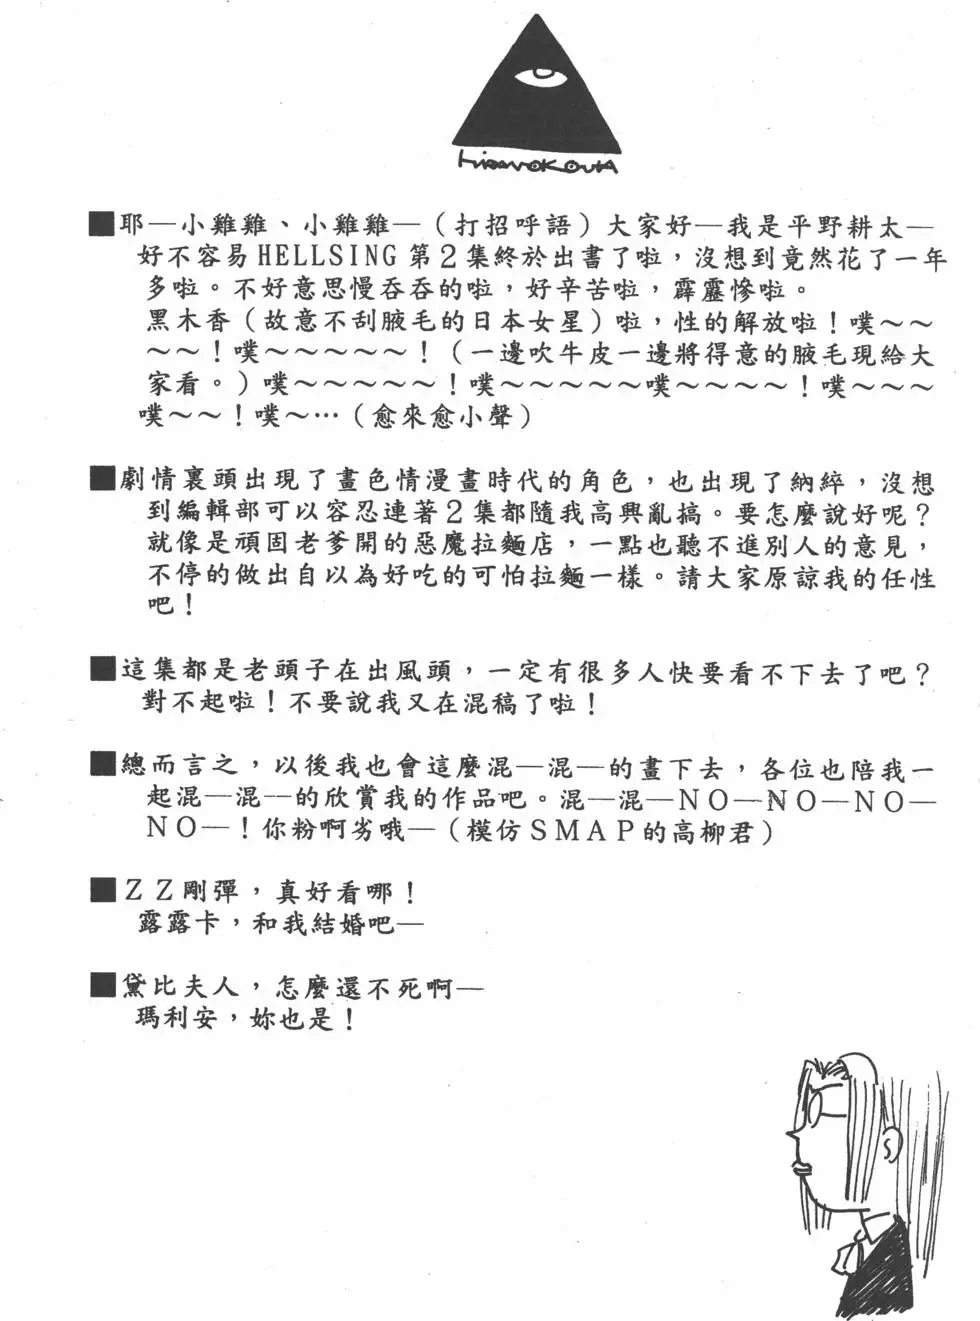 HIRANOKOUTA
■耶—小雞雞、小雞雞—(打招呼語)大家好—我是平野耕太—
好不容易HELLSING第2集終於出書了啦,沒想到竟然花了一年
多啦。不好意思慢吞吞的啦,好辛苦啦,霹靂慘啦。
黑木香(故意不刮腋毛的日本女星)啦,性的解放啦!噗～～
～～!噗～～～～～!(一邊吹牛皮一邊將得意的腋毛現給大
家看。)噗～～～～～!噗～～～～～噗～～～～!噗～～～
噗～～!噗～…(愈來愈小聲)
■劇情裏頭出現了畫色情漫畫時代的角色,也出現了納綷,沒想
到編輯部可以容忍連著2集都隨我高興亂搞。要怎麼說好呢?
就像是頑固老爹開的惡魔拉麵店,一點也聽不進別人的意見,
不停的做出自以為好吃的可怕拉麵一樣。請大家原諒我的任性
吧!
■這集都是老頭子在出風頭,一定有很多人快要看不下去了吧?
對不起啦!不要說我又在混稿了啦!
■總而言之,以後我也會這麼混—混—的畫下去,各位也陪我一
起混—混—的欣賞我的作品吧。混—混—NO—NO—NO—
NO—!你粉啊劣哦—(模仿SMAP的高柳君)
■ZZ剛彈,真好看哪!
露露卡,和我結婚吧—
■黛比夫人,怎麼還不死啊—
瑪利安,妳也是!